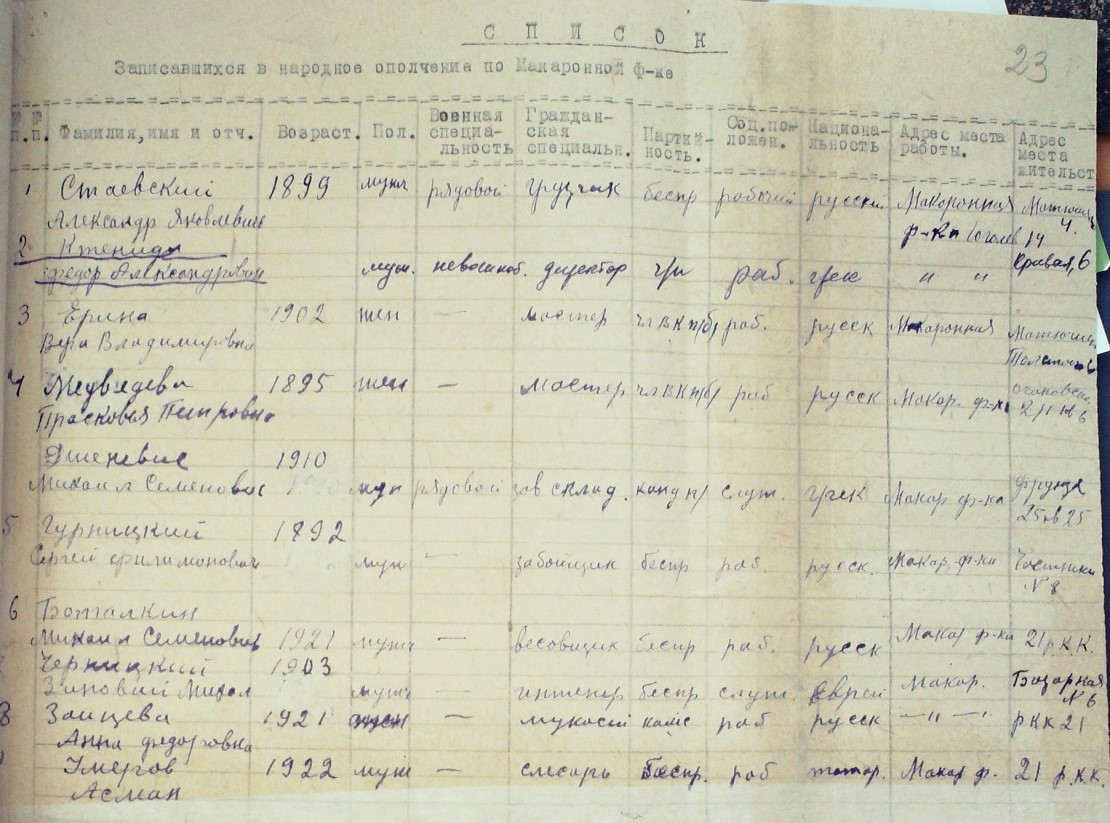 СПИСОК
23
Записавшихся в народное ополчение по Макаронной ф-ке
№ № п.п. Фамилия, имя и отч. Возраст. Пол. Военная специальность Гражданская специальн. Партийность. Соц.положен. Национальность Адрес места работы. Адрес места жительст
1 Стаевский 1899 муж рядовой грузчик беспр рабочий русский Макаронная
Александр Яковлевич ф-ка 14
2 Ктениди
Федор Александрович муж. невоеннооб. директор чл раб. грек " " Кривая, 6
3 Ерина 1902 жен — мастер чл ВКП/б/ раб. русск Макаронная
Вера Владимировна
4 Медведева 1895 жен — мастер чл ВКП/б/ раб русск Макар. ф-ка
Прасковья Петровна
1910
Михаил Семенович муж рядовой зав склад. канд п/ служ. грек Макар ф-ка Фрунзе
25 кв 25
5 Гурницкий 1892
Сергей Филимонович муж — забойщик беспр раб. русск. Макар. ф-ка Частника
№ 8
6 Боталкин
Михаил Семенович 1921 муж — весовщик беспр раб. русск Макар ф-ка 21 р.К.К.
Черницкий 1903
Зиновий Михал муж — инженер беспр служ. Еврей Макар. Базарная
№ 6
8 Зайцева 1921 жен — комс раб русск —"— рКК 21
Анна Федоровна
Умеров 1922 муж — слесарь беспр. раб татар. Макар ф. 21 р.К.К.
Асман